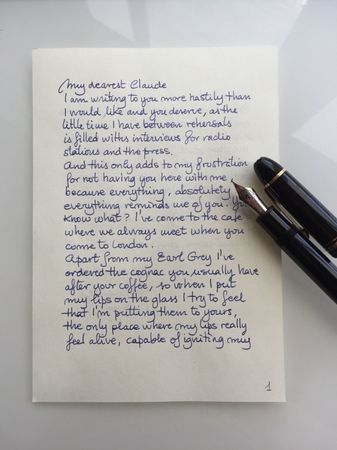 My dearest Claude
I am writing to you more hastily than
I would like and you deserve, as the
little time I have between rehersals
is filled with interviews for radio
stations and the press.
And this only adds to my frustration
for not having you here with me
because everything, absolutely
everything reminds me of you. You
know what? I've come to the café
where we always meet when you
come to London.
Apart from my Earl Grey I've
ordered the cognac you usually have
after your coffee, so when I put
my lips on the glass I try to feel
that I'm putting them to yours,
the only place where my lips really
feel alive, capable of igniting my
1